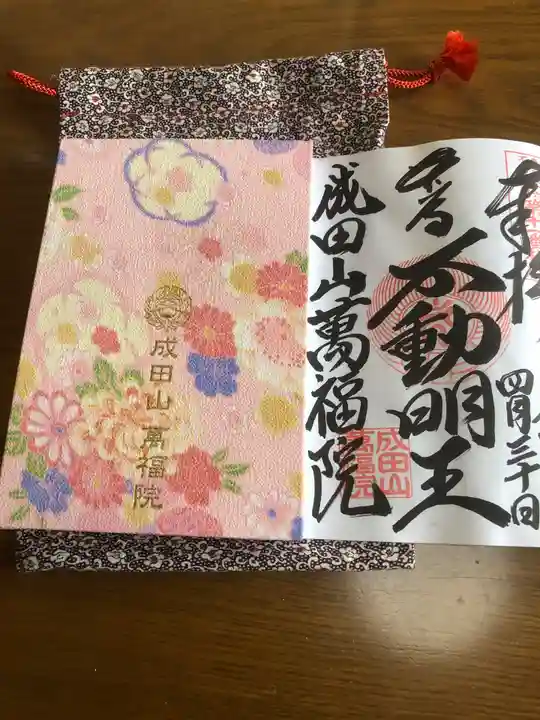 成田山
萬福院
奉拝
四月三十日
不動明王
成田山萬福院
成田山
萬福院